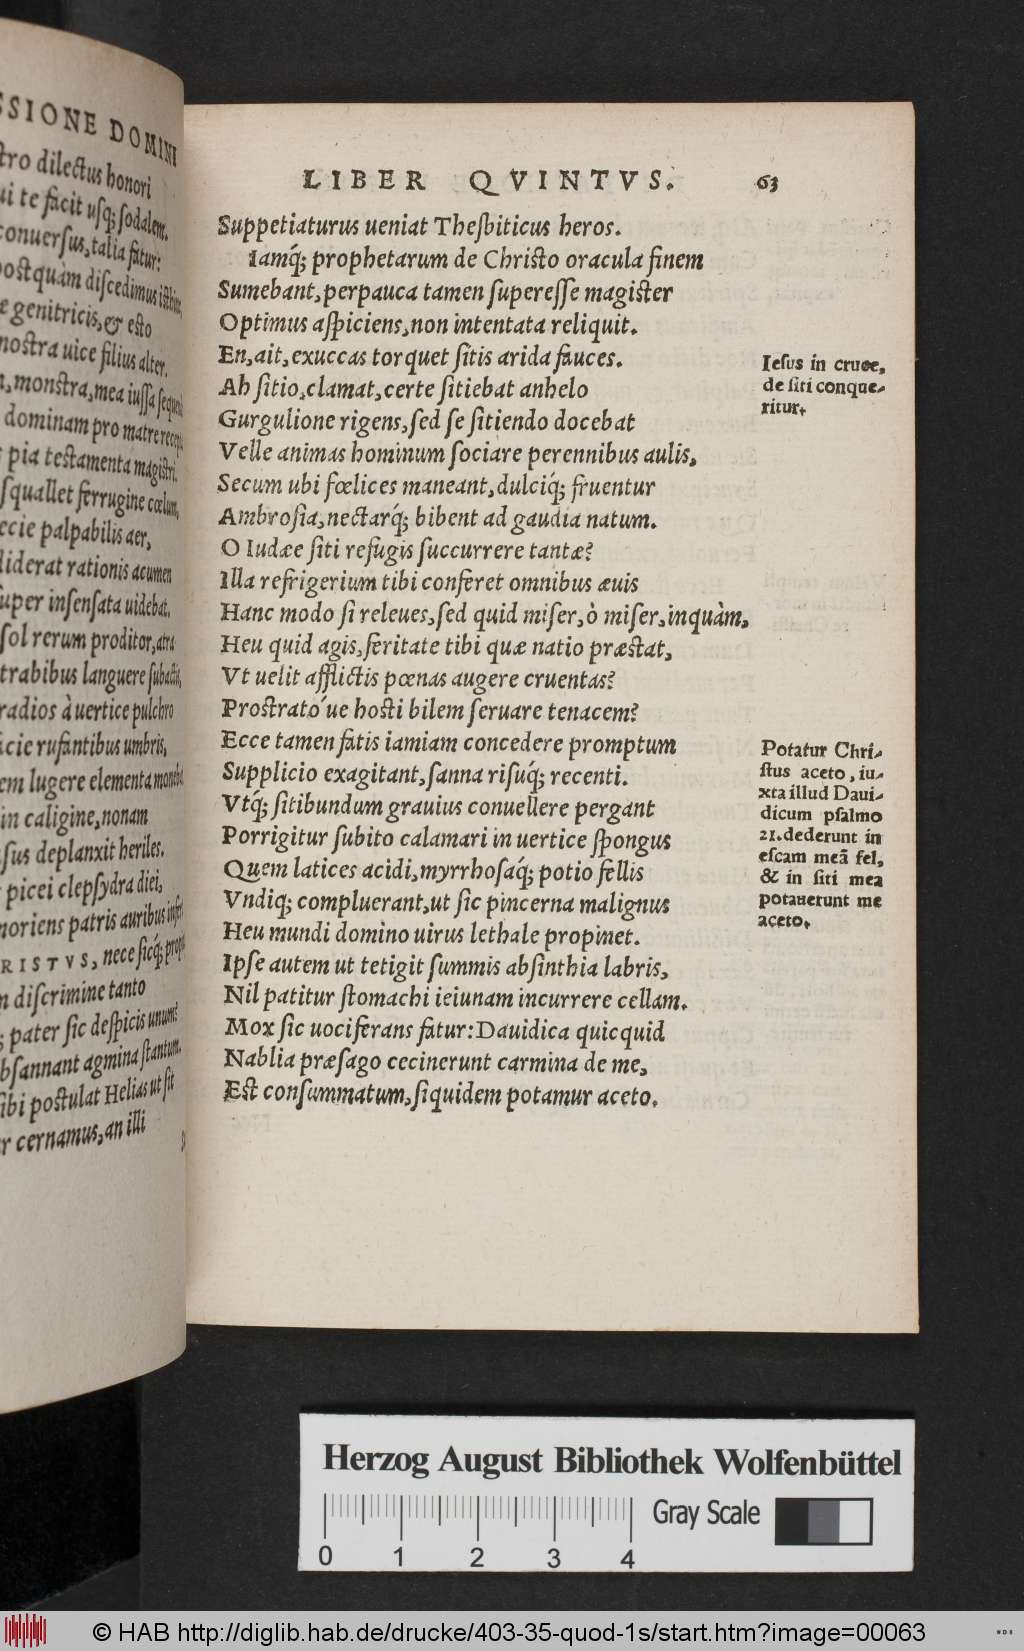 SSIONE DOMINI
tro dilectus honori
ui te facit usq; sodalem.
conuersus, talia fatur:
postquàm discedimus istinc,
æ genitricis, & esto
nostra uice filius alter.
monstra, mea iussa
dominam pro matre
pia testamenta magistri.
squallet ferrugine cœlum,
ecie palpabilis aer,
liderat rationis acumen
uper insensata uidebat.
sol rerum proditor, atra
trabibus languere subactis,
radios à uertice pulchro
cie rufantibus umbris,
em lugere elementa
in caligine, nonam
sus deplanxit heriles.
picei clepsydra diei,
moriens patris auribus
RISTVS, nece sicq́;
discrimine tanto
; pater sic despicis unum?
bsannant agmina stantum.
ibi postulat Helias ut sit
r cernamus, an illi
LIBER QVINTVS. 63
Suppetiaturus ueniat Thesbiticus heros.
Iamq́; prophetarum de Christo oracula finem
Sumebant, perpauca tamen superesse magister
Optimus aspiciens, non intentata reliquit.
En, ait, exuccas torquet sitis arida fauces.
Ah sitio, clamat, certe sitiebat anhelo
Gurgulione rigens, sed se sitiendo docebat
Velle animas hominum sociare perennibus aulis,
Secum ubi fœlices maneant, dulciq́; fruentur
Ambrosia, nectarq́; bibent ad gaudia natum.
O Iudæe siti refugis succurrere tantæ?
Illa refrigerium tibi conferet omnibus æuis
Hanc modo si releues, sed quid miser, ò miser, inquàm,
Heu quid agis, feritate tibi quæ natio præstat,
Vt uelit afflictis pœnas augere cruentas?
Prostrató ue hosti bilem seruare tenacem?
Ecce tamen fatis iamiam concedere promptum
Supplicio exagitant, sanna risuq́; recenti.
Vtq́; sitibundum grauius conuellere pergant
Porrigitur subito calamari in uertice spongus
Quem latices acidi, myrrhosaq́; potio fellis
Vndiq; compluerant, ut sic pincerna malignus
Heu mundi domino uirus lethale propinet.
Ipse autem ut tetigit summis absinthia labris,
Nil patitur stomachi ieiunam incurrere cellam.
Mox sic uociferans fatur: Dauidica quicquid
Nablia præsago cecinerunt carmina de me,
Est consummatum, siquidem potamur aceto.
Iesus in cruce,
de siti conque-
ritur.
Potatur Chri-
stus aceto, iu-
xta illud Daui-
dicum psalmo
21. dederunt in
escam meã fel,
& in siti mea
potauerunt me
aceto.
Herzog August Bibliothek Wolfenbüttel
Gray Scale
0 1 2 3 4
© HAB http://diglib.hab.de/drucke/403-35-quod-1s/start.htm?image=00063